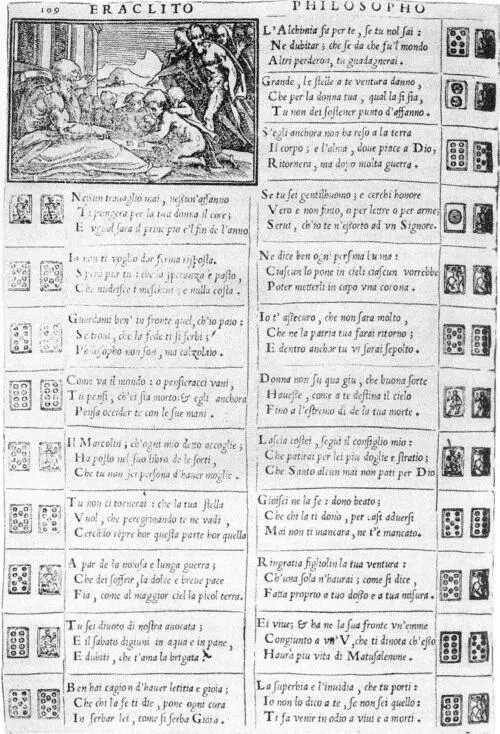 109 ERACLITO PHILOSOPHO
Nessun travaglio mai, nessun'affanno
Ti pungera per la tua donna il core;
E ugual sara il principio e'l fin de l'anno.
Io non ti voglio dar ferma risposta.
Spera pur tu: che la speranza è pasto,
Che nudrisce i meschini; e nulla costa.
Guardami ben' in fronte quel, ch'io paio:
Se trovi, che la fede ti si serbi;
Philosopho non son, ma calzolaio.
Come va il mondo: o pensieracci vani,
Tu pensi, ch'ei sia morto: & egli anchora
Pensa occider te con le sue mani.
Il Marcolini; ch'ogni mio detto accoglie;
Ha posto nel suo libro de le sorti,
Che tu non sei persona d'haver moglie.
Tu non ci tornerai: che la tua stella
Vuol, che peregrinando te ne vadi,
Cercādo sēpre hor questa parte hor quella
A par de la noiosa e lunga guerra;
Che dei soffrir, la dolce e breve pace
Fia, come al maggior ciel la picol terra.
Tu sei divoto di nostra avocata;
E il sabato digiuni in aqua e in pane,
E dubiti, che t'ama la brigata?
Ben hai cagion d'haver letitia e gioia;
Che chi la fe ti die, pone ogni cura
In serbar lei, come si serba Gioia.
L'Alchimia fa per te, se tu nol sai:
Ne dubitar; che se da che fu'l mondo
Altri perderon, tu guadagnerai.
Grande, le stelle a te ventura danno,
Che per la donna tua, qual la si sia,
Tu non dei sostener punto d'affanno.
S'egli anchora non ha reso a la terra
Il corpo; e l'alma, dove piace a Dio,
Ritornera, ma dopo molta guerra.
Se tu sei gentilhuomo; e cerchi honore
Vero e non finto, o per lettre o per arme;
Servi, ch'io te n'esorto ad un Signore.
Ne dice ben ogni persona humana:
Ciascun lo pone in ciel; ciascun vorrebbe
Poter metterli in capo una corona.
Io t'assecuro, che non sara molto,
Che ne la patria tua farai ritorno;
E dentro anchor tu vi sarai sepolto.
Donna non fu qua giu, che buona sorte
Havesse, come a te destina il cielo
Fino a l'estremo di de la tua morte.
Lascia costei, segui il consiglio mio:
Che patirai per lei piu doglie e stratio;
Che Santo alcun mai non pati per Dio
Gioisci ne la fe: dono beato;
Che chi la ti donò, per casi aduersi
Mai non ti mancara, ne t'è mancato.
Ringratia figliolin la tua ventura:
Ch'una sola n'haurai; come si dice,
Fatta proprio a tuo dosso e a tua misura.
Ei vive; & ha ne la sua fronte vn'emme
Congiunto a vn'V, che ti dinota ch'esso
Haurà piu vita di Matusalemme.
La superbia e l'invidia, che tu porti:
Io non lo dico a te, se non sei quello:
Ti fa venir in odio a vivi e a morti.